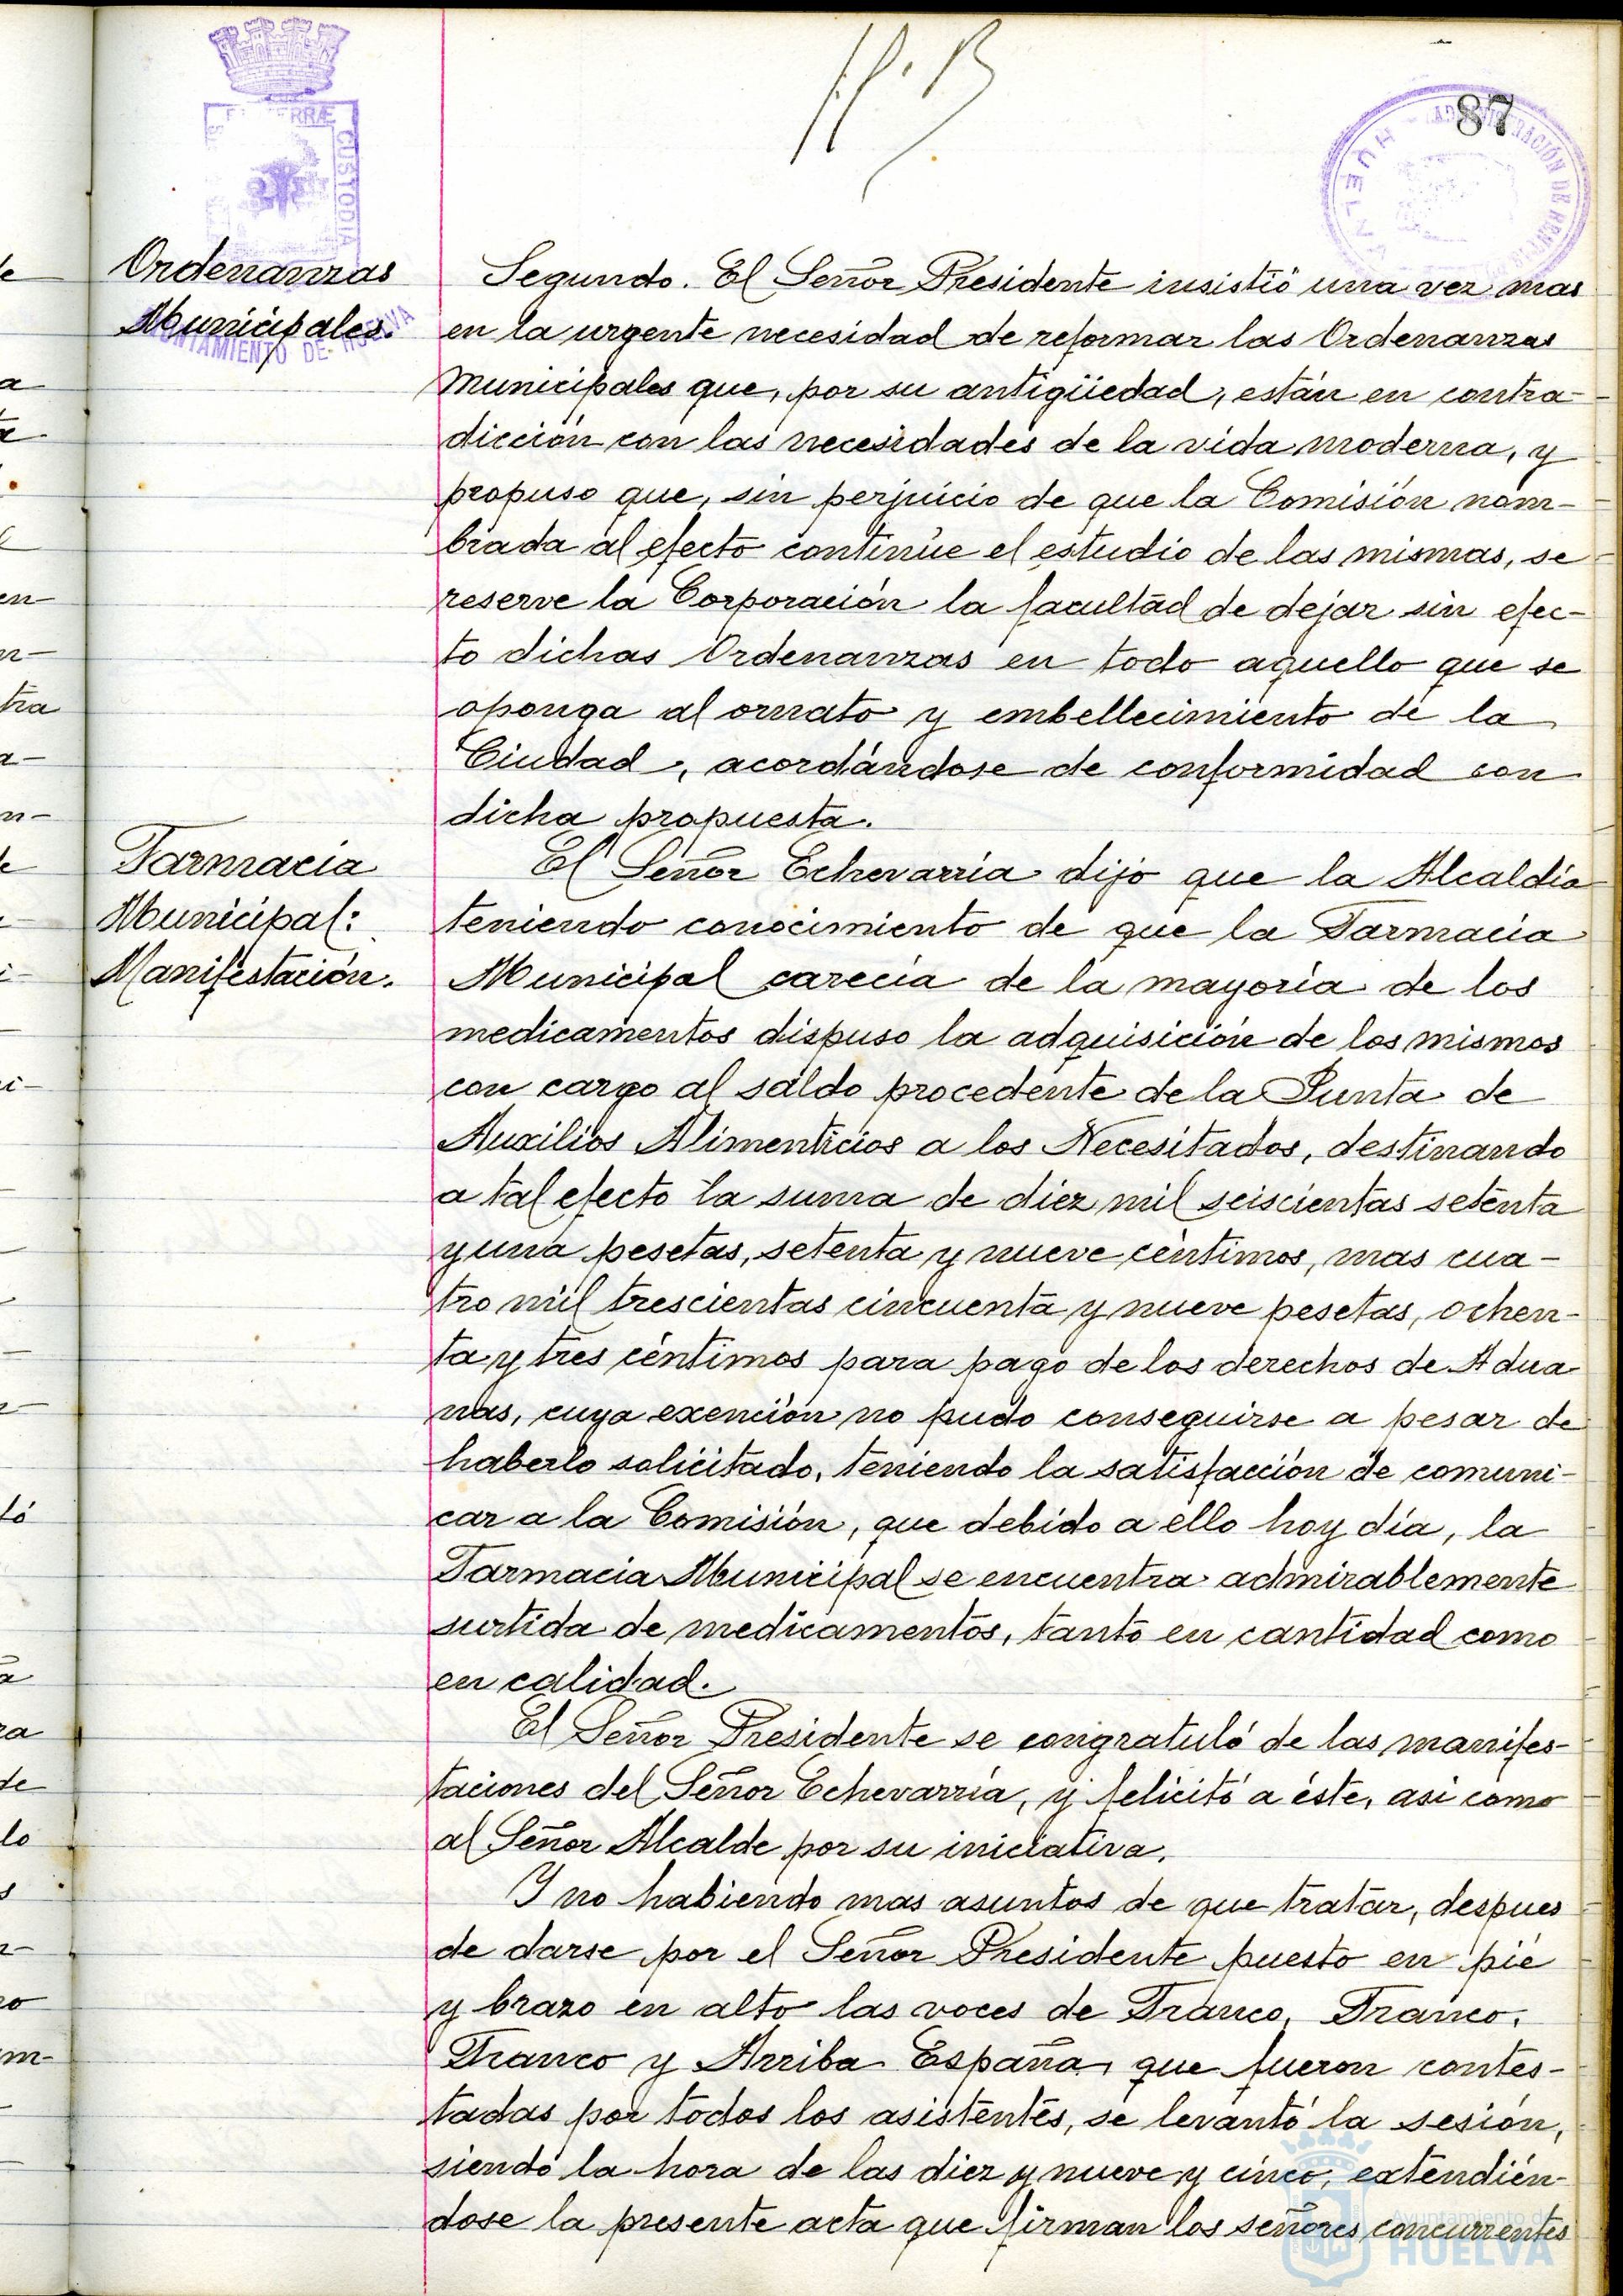 87
Ordenanzas
Municipales.
Segundo. El Señor Presidente insistió una vez mas
en la urgente necesidad de reformar las Ordenanzas
Municipales que, por su antigüedad, están en contra-
dicción con las necesidades de la vida moderna, y
propuso que, sin perjuicio de que la Comisión nom-
brada al efecto continúe el estudio de las mismas, se
reserve la Corporación la facultad de dejar sin efec-
to dichas Ordenanzas en todo aquello que se
oponga al ornato y embellecimiento de la
Ciudad, acordándose de conformidad con
dicha propuesta.
Farmacia
Municipal:
Manifestación.
El Señor Echevarria dijo que la Alcaldía
teniendo conocimiento de que la Farmacia
Municipal carecía de la mayoría de los
medicamentos dispuso la adquisición de los mismos
con cargo al saldo procedente de la Junta de
Auxilios Alimenticios a los Necesitados, destinando
a tal efecto la suma de diez mil seiscientas setenta
y una pesetas, setenta y nueve céntimos, mas cua-
tro mil trescientas cincuenta y nueve pesetas, ochen-
ta y tres céntimos para pago de los derechos de Adua
nas, cuya exención no pudo conseguirse a pesar de
haberlo solicitado, teniendo la satisfacción de comuni-
car a la Comisión, que debido a ello hoy día, la
Farmacia Municipal se encuentra admirablemente
surtida de medicamentos, tanto en cantidad como
en calidad.
El Señor Presidente se congratuló de las manifes-
taciones del Señor Echevarría, y felicitó a éste, asi como
al Señor Alcalde por su iniciativa.
Y no habiendo mas asuntos de que tratar, despues
de darse por el Señor Presidente puesto en pié
y brazo en alto las voces de Franco, Franco,
Franco y Arriba España, que fueron contes-
tadas por todos los asistentes, se levantó la sesión,
siendo la hora de las diez y nueve y cinco, extendién-
dose la presente acta que firman los señores concurrentes
Ayuntamiento de
HUELVA